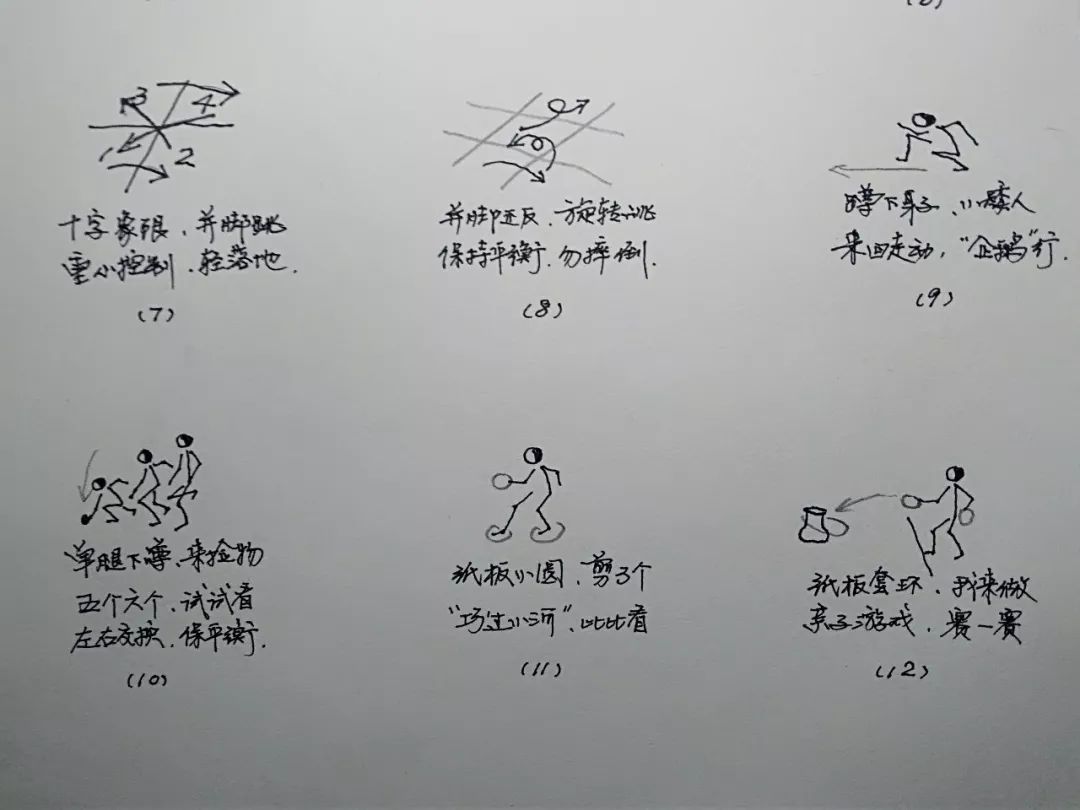 (6)
3
4
1
2
十字象限、并脚跳
重心控制、轻落地.
(7)
并脚还反、旋转跳
保持平衡、勿摔倒.
(8)
蹲下身子、小矮人
来回走动，“企鹅”行.
(9)
单腿下蹲、来捡物
五个六个、试试看
左右交换、保平衡.
(10)
纸板小圆、剪3个
“巧过小河”、比比看
(11)
纸板套环、我来做
亲子游戏、赛一赛
(12)